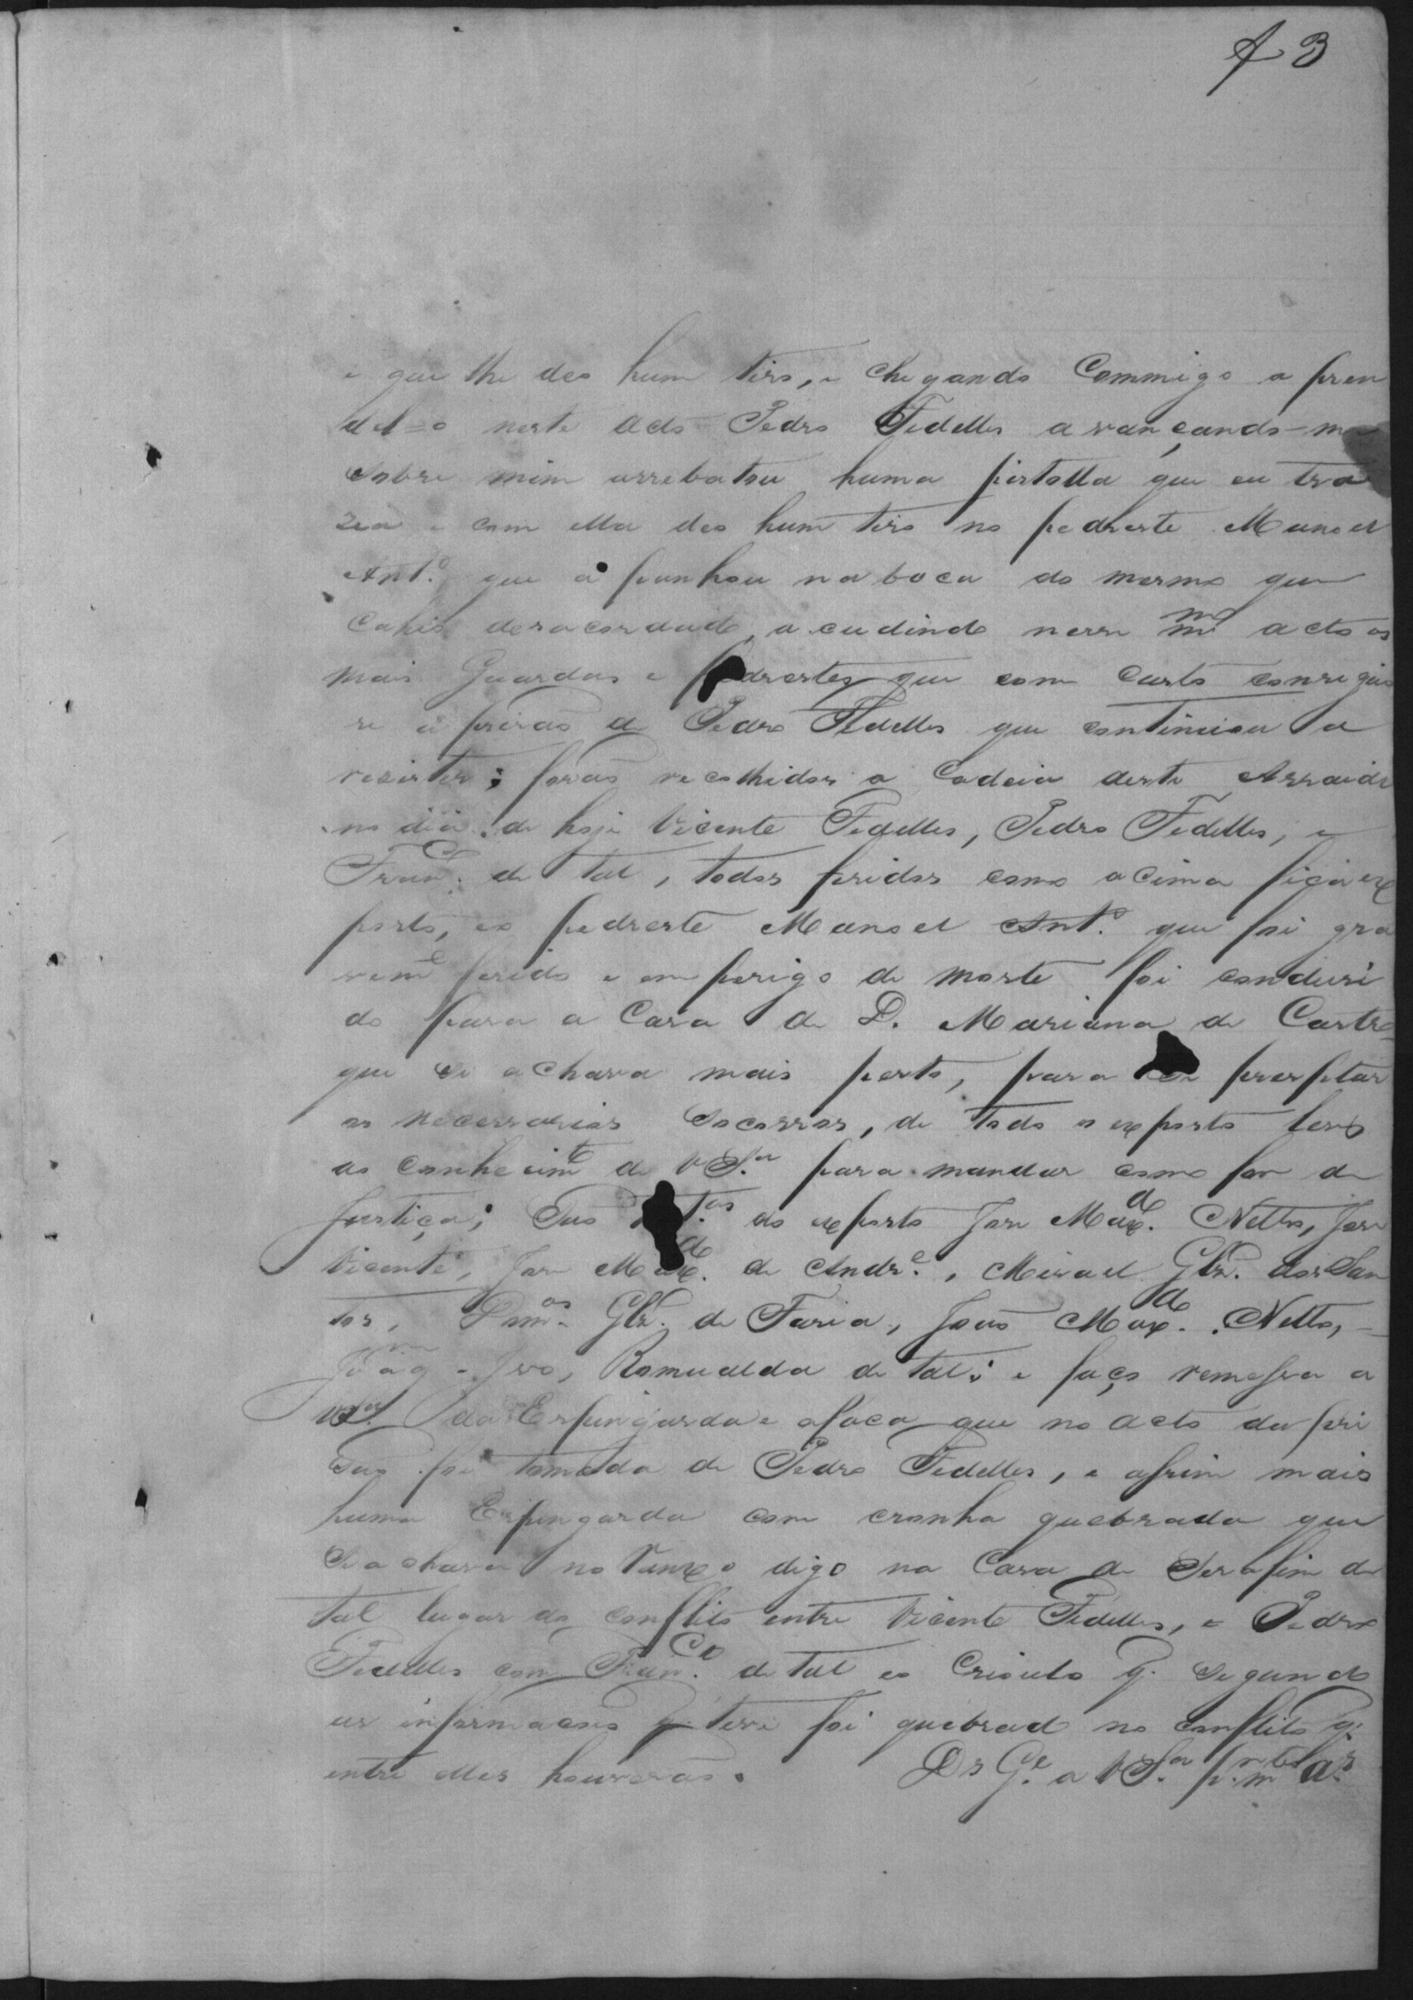 f 3
e que lhe deo hum tiro, e chegando Commigo a pren
del=o neste acto Pedro Fedelles avançando-me
sobre mim arrebatou huma pistolla que eu tra
zia e com ella deo hum tiro no pedreste Manoel
Ant.º que a panhou na boca do mesmo que
cahio desacordado, a cudindo nesse mmo acto os
mais Guardas e pedrestes que com custo consegio
se a prizaõ de Pedro Fedelles que continuou a
rezistir; foraõ recolhidos a Cadeia deste Arraial
no dia de hoje Vicente Fedelles, Pedro Fedelles, e
Franco. de tal, todos feridos como acima fica ex
posto, eo pedreste Manoel Ant.º que foi gra
veme ferido e em perigo de morte foi conduzi
do para a Caza de D. Mariana de Castro
que se achava mais perto, para se prespetar
os necessarios socorros, de todo o exposto levo
ao conhecimto de V S.ª para mandar como for de
justiça; Saõ tas do exposto Jose Maxde. Netto, Jose
Vicente, Jose Maxde. de Andre., Misael Glz. dos San
tos, Dmos. Glz. de Faria, Joaõ Maxde. Netto,
Joaqm Ivo, Romualda de tal; e faço remessa a
VSa. da Espingarda e a faca que no acto da pri
zaõ foi tomada de Pedro Fedelles, e assim mais
huma Espingarda com cronha quebrada que
se achava no digo na Caza de Serafim de
tal lugar do conflito entre Vicente Fedelles, e Pedro
Fedelles com Franco. de tal eo Crioulo q. segundo
as informacoes q. tive foi quebrad no conflito q.
entre elles houveraõ. Ds Ge. a V S.ª p.r mtos as